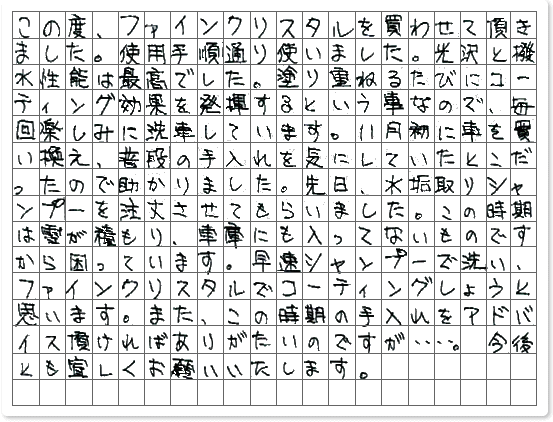 この度、ファインクリスタルを買わせて頂き
ました。使用手順通り使いました。光沢と撥
水性能は最高でした。塗り重ねるたびにコー
ティング効果を発揮するという事なので、毎
回楽しみに洗車しています。11月初に車を買
い換え、普段の手入れを気にしていたとこだ
ったので助かりました。先日、水垢取りシャ
ンプーを注文させてもらいました。この時期
は雪が積もり、車庫にも入ってないものです
から困っています。早速シャンプーで洗い、
ファインクリスタルでコーティングしようと
思います。また、この時期の手入れをアドバ
イス頂ければありがたいのですが・・・・。今後
とも宜しくお願いいたします。